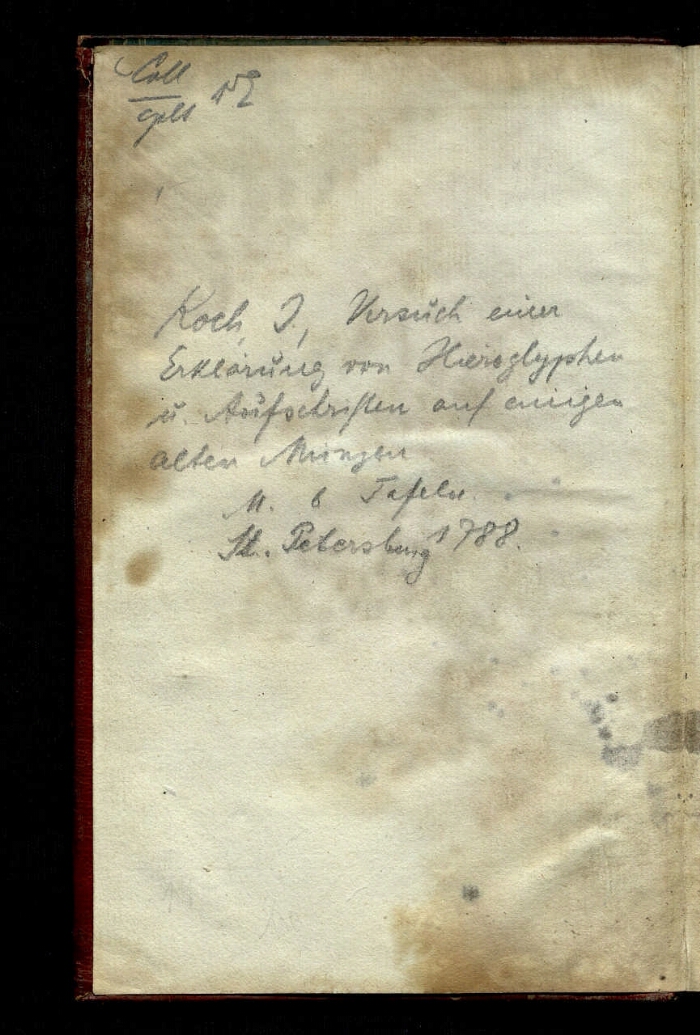 Coll
cplt
Koch, J., Versuch einer
Erklärung von Hieroglyphen
u. Aufschriften auf einigen
alten Münzen
M. 6 Tafeln.
St. Petersburg 1788.